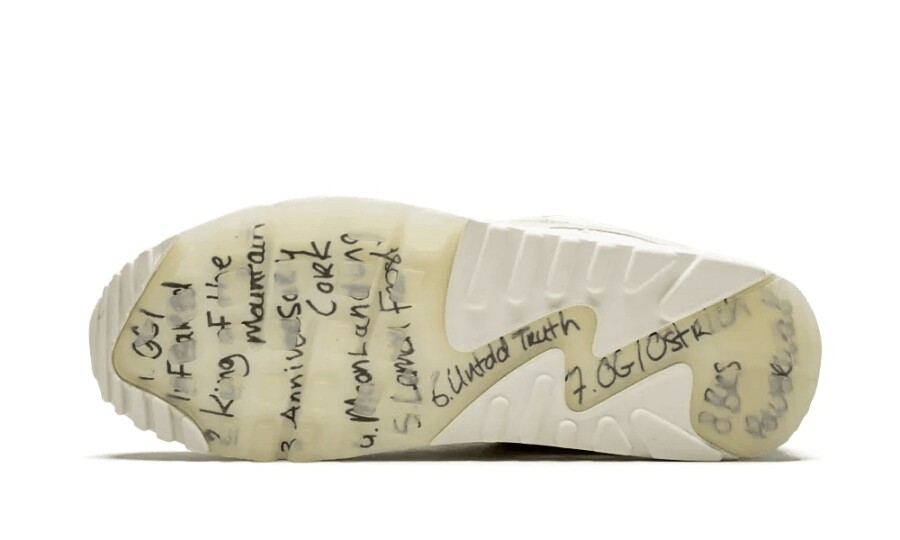 1. OG/
2. King of the
Mountain
3. Anniversary
CORK
4. Moon Landing
5. Lemon Frost
6. Untold Truth
7. OG/Ostrich
8 Bas